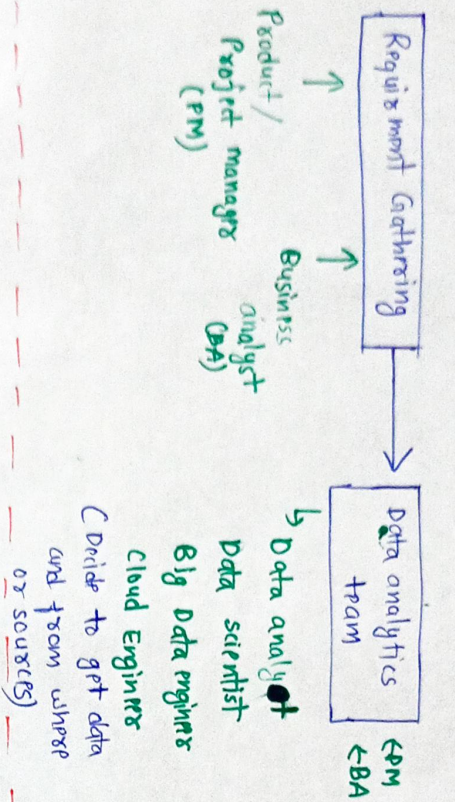 Requirment Gathering
Product /
Project manager
(PM)
Business
analyst
(BA)
Data analytics
team
←PM
←BA
↳ Data analyst
Data scientist
Big Data engineer
Cloud Engineer
(Decide to get data
and from where
or sources)